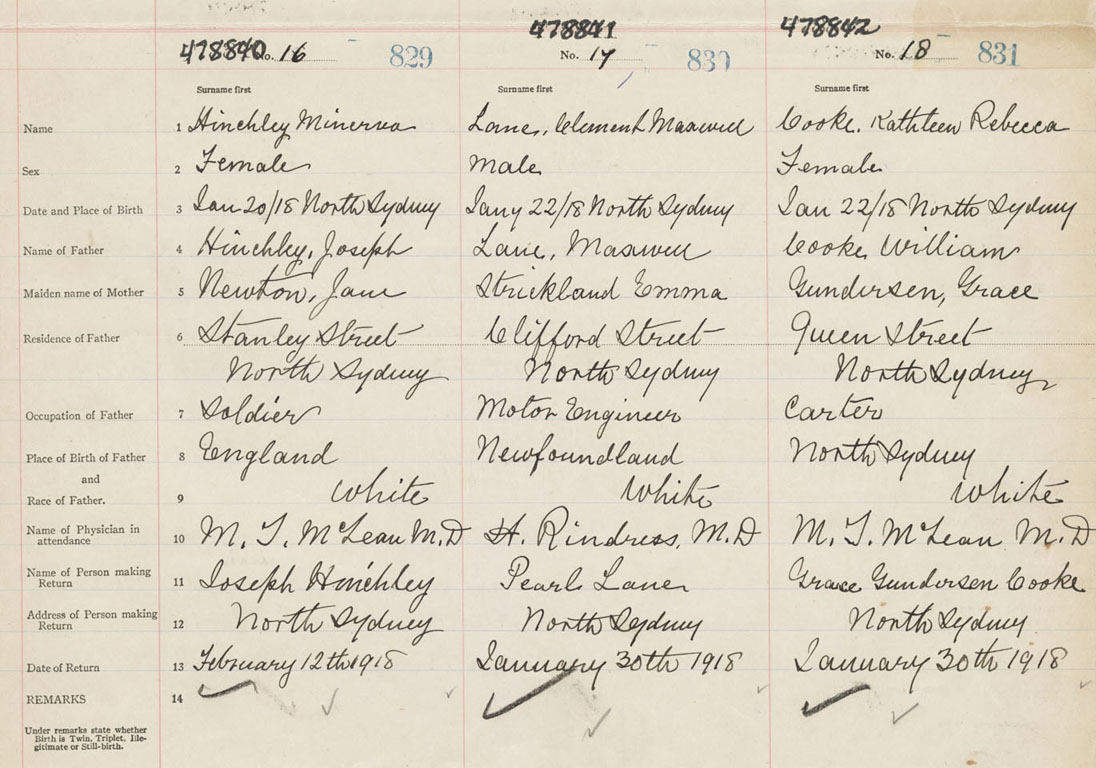 478840 No. 16 829
478841 No. 17 830
478842 No. 18 831
Surname first Surname first Surname first
Name 1 Hinchley Minerva Lane, Clement Maxwell Cooke, Kathleen Rebecca
Sex 2 Female Male Female
Date and Place of Birth 3 Jan 20/18 North Sydney Jany 22/18 North Sydney Jan 22/18 North Sydney
Name of Father 4 Hinchley, Joseph Lane, Maxwell Cooke, William
Maiden name of Mother 5 Newton, Jane Strickland Emma Gundersen, Grace
Residence of Father 6 Stanley Street Clifford Street Queen Street
North Sydney North Sydney North Sydney
Occupation of Father 7 Soldier Motor Engineer Carter
Place of Birth of Father 8 England Newfoundland North Sydney
and
Race of Father. 9 White White White
Name of Physician in
attendance 10 M. T. McLean M.D H. Rindress, M.D M. T. McLean M.D
Name of Person making
Return 11 Joseph Hinchley Pearl Lane Grace Gundersen Cooke
Address of Person making
Return 12 North Sydney North Sydney North Sydney
Date of Return 13 February 12th 1918 January 30th 1918 January 30th 1918
REMARKS 14
Under remarks state whether
Birth is Twin, Triplet, Ille-
gitimate or Still-birth.